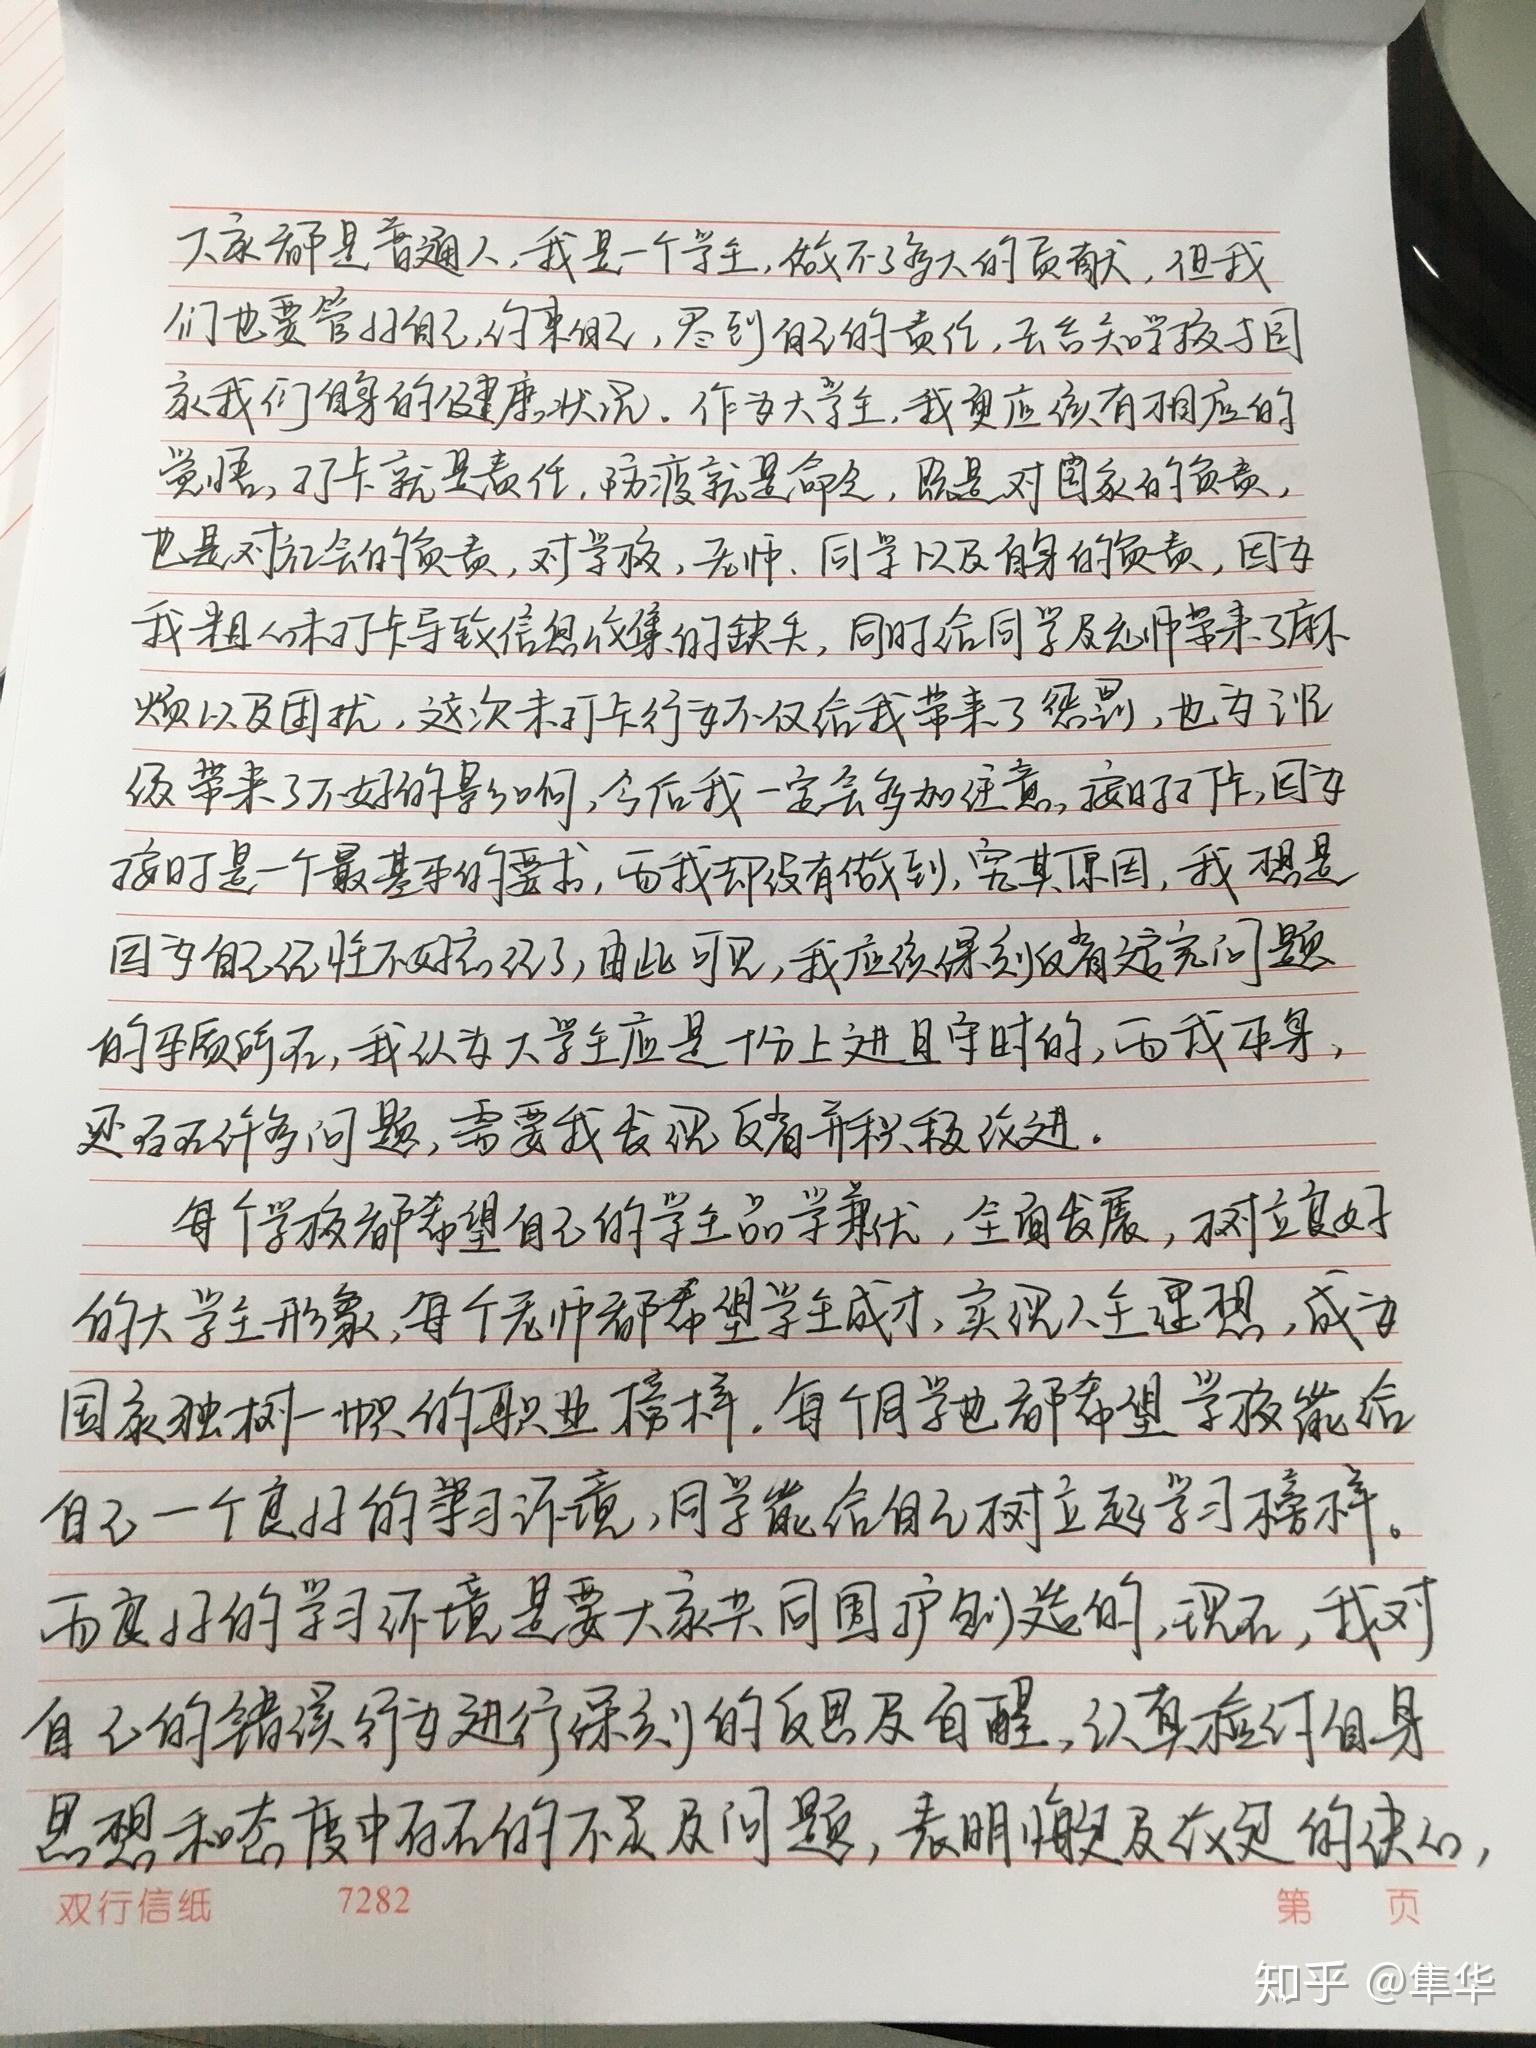 大家都是普通人，我是一个学生，做不了多大的贡献，但我
们也要管好自己，约束自己，尽到自己的责任，去告知学校与国
家我们自身的健康状况。作为大学生，我更应该有相应的
觉悟，打卡就是责任，防疫就是命令，既是对国家的负责，
也是对社会的负责，对学校，老师、同学以及自身的负责，因为
我粗心未打卡导致信息收集的缺失，同时给同学及老师带来了麻
烦以及困扰，这次未打卡行为不仅给我带来了惩罚，也为班
级带来了不好的影响，今后我一定会多加注意，按时打卡，因为
按时是一个最基本的要求，而我却没有做到，究其原因，我想是
因为自己记性不好忘记了，由此可见，我应该深刻反省这完问题
的本质所在，我认为大学生应是十分上进且守时的，而我本身，
还存在许多问题，需要我发现反省并积极改进。
每个学校都希望自己的学生品学兼优，全面发展，树立良好
的大学生形象，每个老师都希望学生成才，实现人生理想，成为
国家独树一帜的职业榜样。每个同学也都希望学校能给
自己一个良好的学习环境，同学能给自己树立起学习榜样。
而良好的学习环境是要大家共同围护创造的，现在，我对
自己的错误行为进行深刻的反思及自醒，认真检讨自身
思想和态度中存在的不足及问题，表明悔过及改过的决心，
双行信纸 7282 第 页
知乎 @隼华